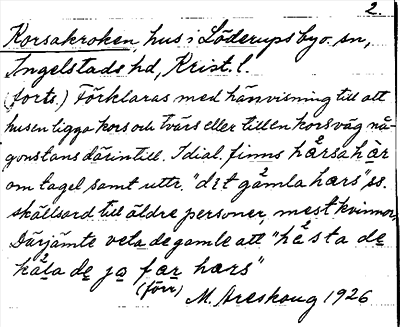 2.
Korsakroken, hus i Löderups by o. sn,
Ingelstads hd, Krist. l.
(forts.) Förklaras med hänvisning till att
husen ligga kors och tvärs eller till en korsväg nå-
gonstans därintill. I dial. finns hårsahår
om tagel samt uttr. "dit gamla hars" ss.
skällsord till äldre personer, mest kvinnor.
Därjämte veta de gamle att "hästa de
kåla de ja far hars"
(förr)
M. Areskoug 1926